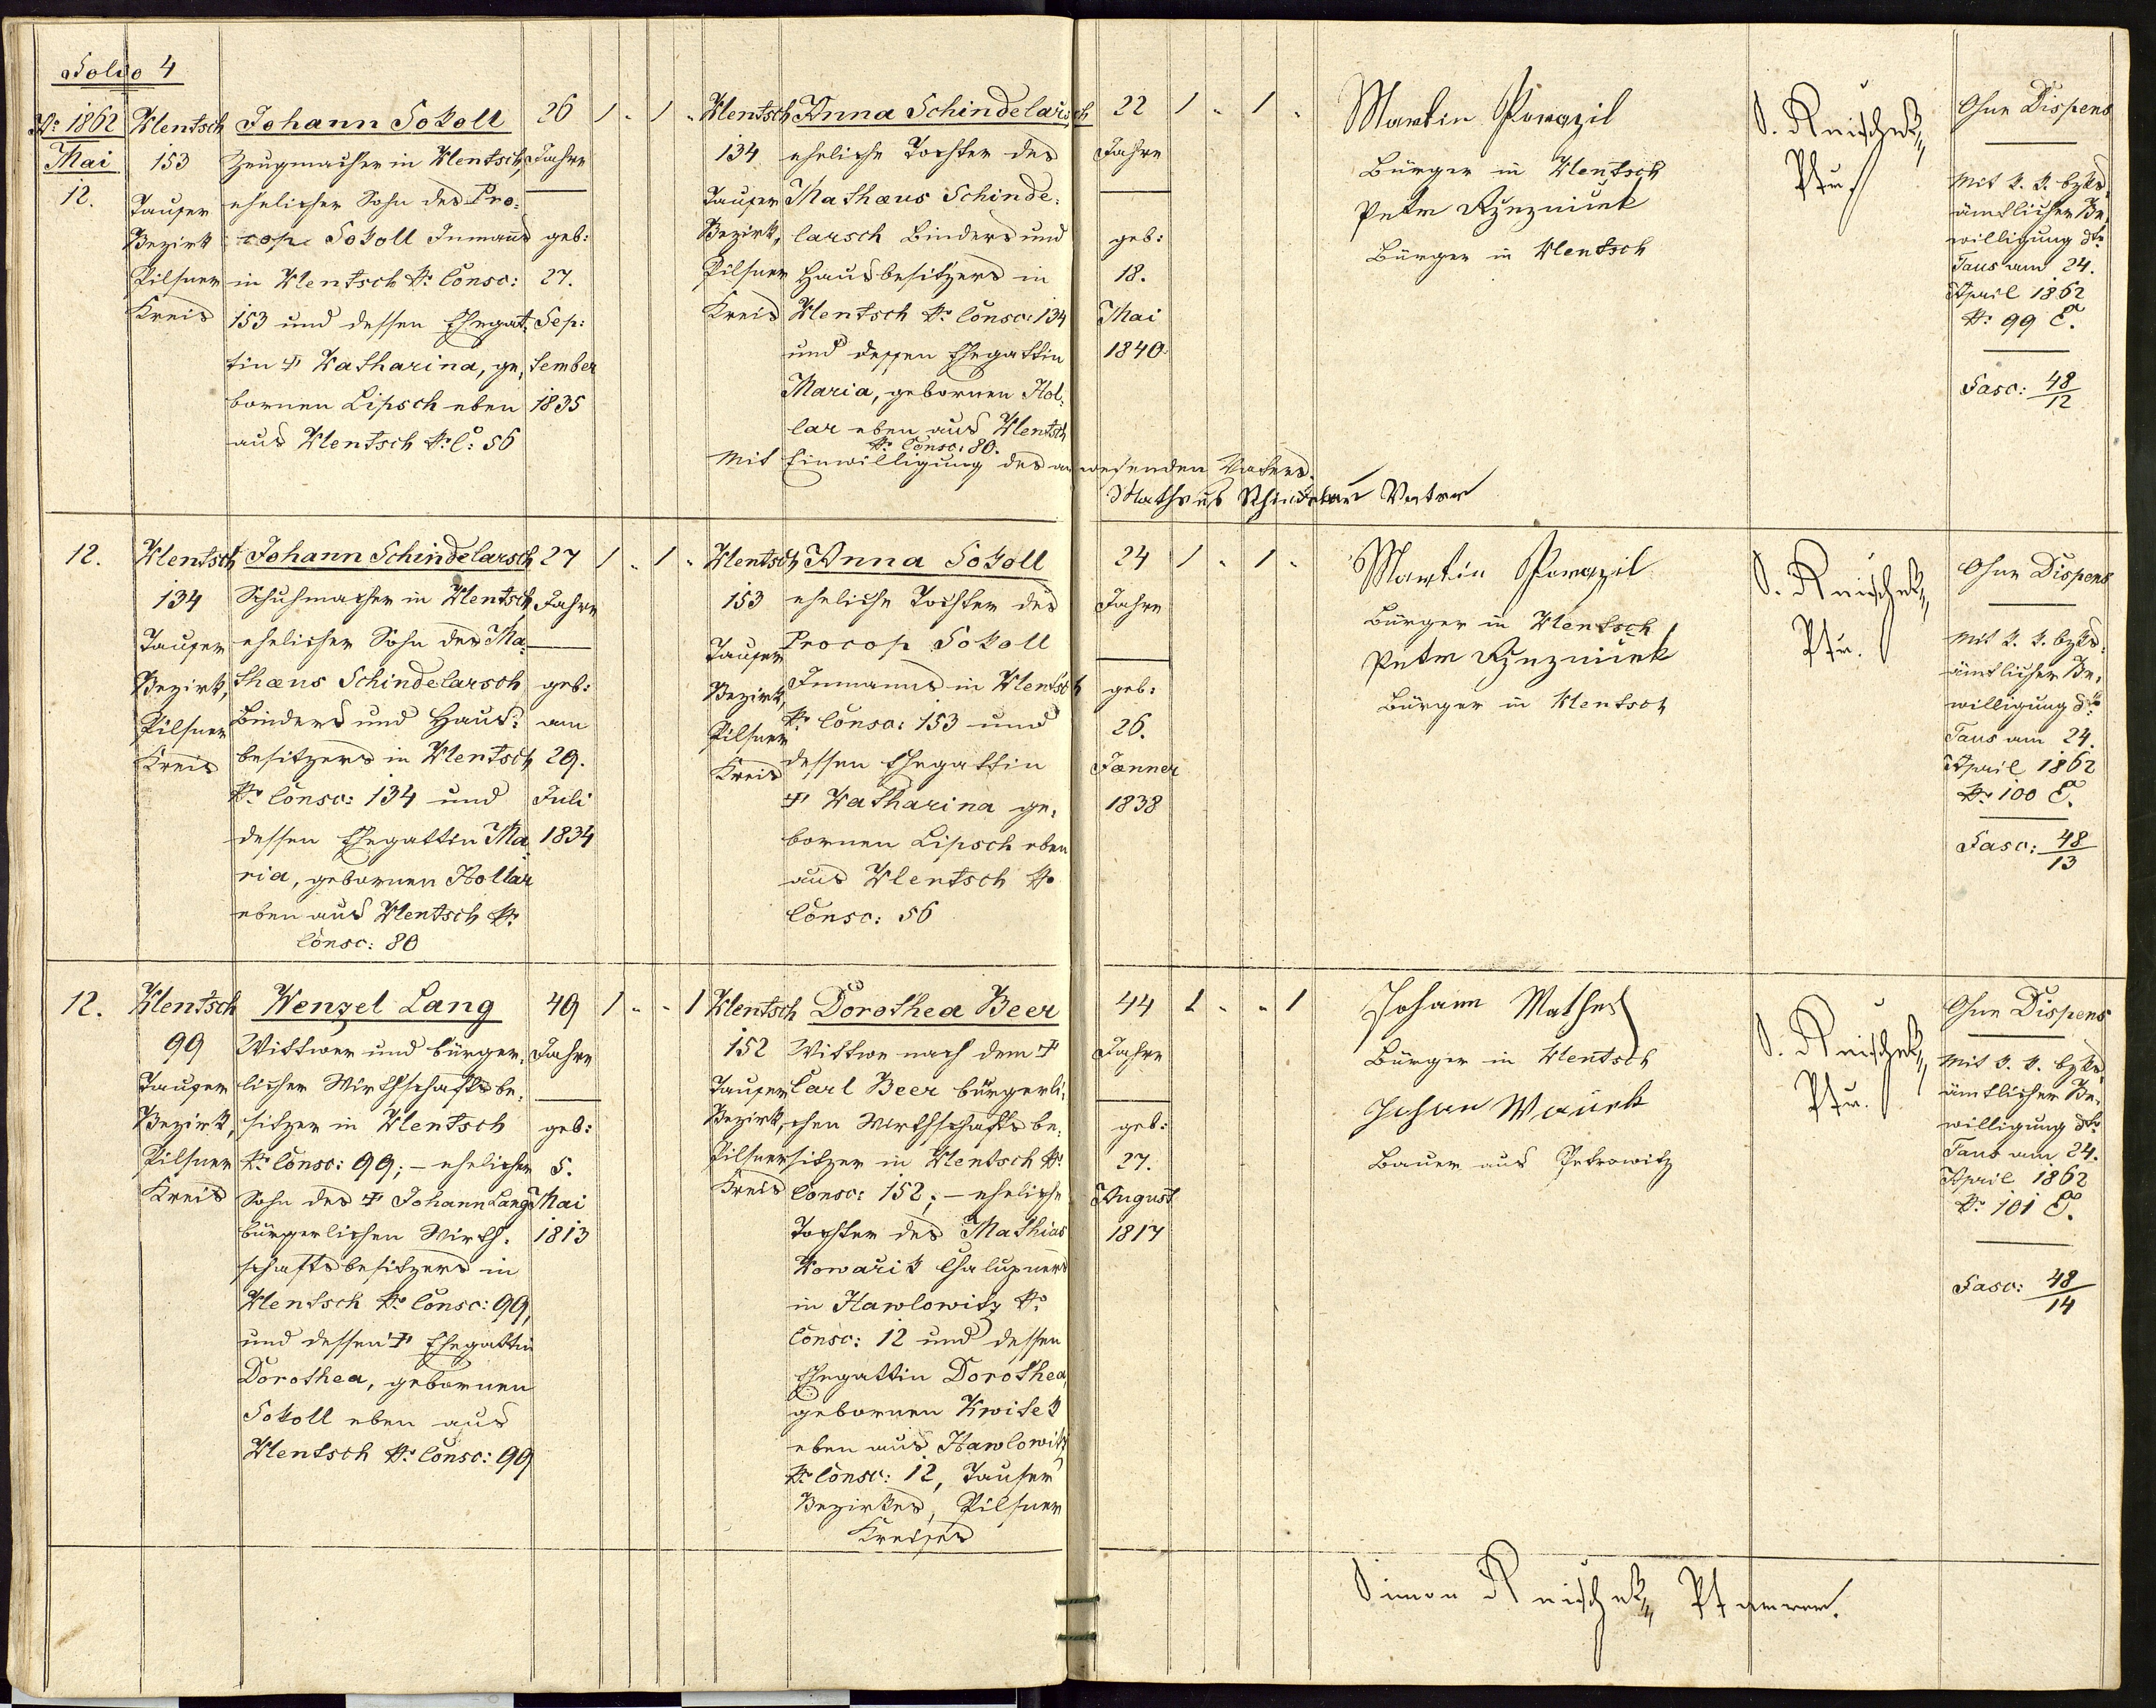 Folio 4
Ao 1862
Mai
12.
Klentsch
153
Tauser
Bezirk
Pilsner
Kreis
Johann Sokoll
Zeugmacher in Klentsch,
ehelicher Sohn des Pro-
cop Sokoll Inmanns
in Klentsch No Consc: 
153 und dessen Ehegat-
tin † Katharina, ge-
bornen Lipsch eben
aus Klentsch No C: 56
26
Jahre
geb:
27.
Sep:
tember
1835
1 " 1 "
Klentsch
134
Tauser
Bezirk,
Pilsner
Kreis
Anna Schindelarsch
eheliche Tochter des
Mathæus Schinde-
larsch Binders und
Hausbesitzers in
Klentsch No Consc: 134
und dessen Ehegattin
Maria, gebornen Hol-
lar eben aus Klentsch
No Consc: 80.
Mit Einwilligung des anwesenden Vaters.
Vater
22
Jahre
geb:
18.
Mai
1840
1 " 1 "
Martin
Bürger in Klentsch
Peter
Bürger in Klentsch
S. Knischek
Pfr.
Ohne Dispens
Mit k. k. bzks-
ämtlicher Be-
willigung dto
Taus am 24.
April 1862
No 99 E.
Fasc: 48/12
12.
Klentsch
134
Tauser
Bezirk,
Pilsner
Kreis
Johann Schindelarsch
Schuhmacher in Klentsch,
ehelicher Sohn des Ma-
thæus Schindelarsch
Binders und Haus-
besitzers in Klentsch
No Consc: 134 und
dessen Ehegattin Ma-
ria, gebornen Hollar
eben aus Klentsch No
Consc: 80
27
Jahre
geb:
am
29.
Juli
1834
1 " 1 "
Klentsch
153
Tauser
Bezirk,
Pilsner
Kreis
Anna Sokoll
eheliche Tochter des
Procop Sokoll
Inmanns in Klentsch
No Consc: 153 und
dessen Ehegattin
† Katharina ge-
bornen Lipsch eben
aus Klentsch No
Consc: 56
24
Jahre
geb:
26.
Jænner
1838
1 " 1 "
Martin
Bürger in Klentsch
Peter
Bürger in Klentsch
S. Knischek
Pfr.
Ohne Dispens
Mit k. k. bzks-
ämtlicher Be-
willigung dto
Taus am 24.
April 1862
No 100 E.
Fasc: 48/13
12.
Klentsch
99
Tauser
Bezirk,
Pilsner
Kreis
Wenzel Lang
Wittwer und bürger-
licher Wirthschaftsbe-
sitzer in Klentsch
No Consc: 99; – ehelicher
Sohn des † Johann Lang
bürgerlichen Wirth-
schaftsbesitzers in
Klentsch No Consc: 99,
und dessen † Ehegattin
Dorothea, gebornen
Sokoll eben aus
Klentsch No Consc: 99
49
Jahre
geb:
5.
Mai
1813
1 " " 1
Klentsch
152
Tauser
Bezirk,
Pilsner
Kreis
Dorothea Beer
Wittwe nach dem †
Carl Beer bürgerli-
chen Wirthschaftsbe-
sitzer in Klentsch No
Consc: 152; – eheliche
Tochter des Mathias
Kowarik Chalupners
in Hawlowitz No
Consc: 12 und dessen
Ehegattin Dorothea,
gebornen Kwitek
eben aus Hawlowitz
No Consc: 12, Tauser
Bezirkes, Pilsner
Kreises
44
Jahre
geb:
27.
August
1817
1 " " 1
Johann Mathes
Bürger in Klentsch
Johann
Bauer aus Petrowitz
S. Knischek
Pfr.
Ohne Dispens
Mit k. k. bzks-
ämtlicher Be-
willigung dto
Taus am 24.
April 1862
No 101 E.
Fasc: 48/14
Simon Knischek Pfarrer.